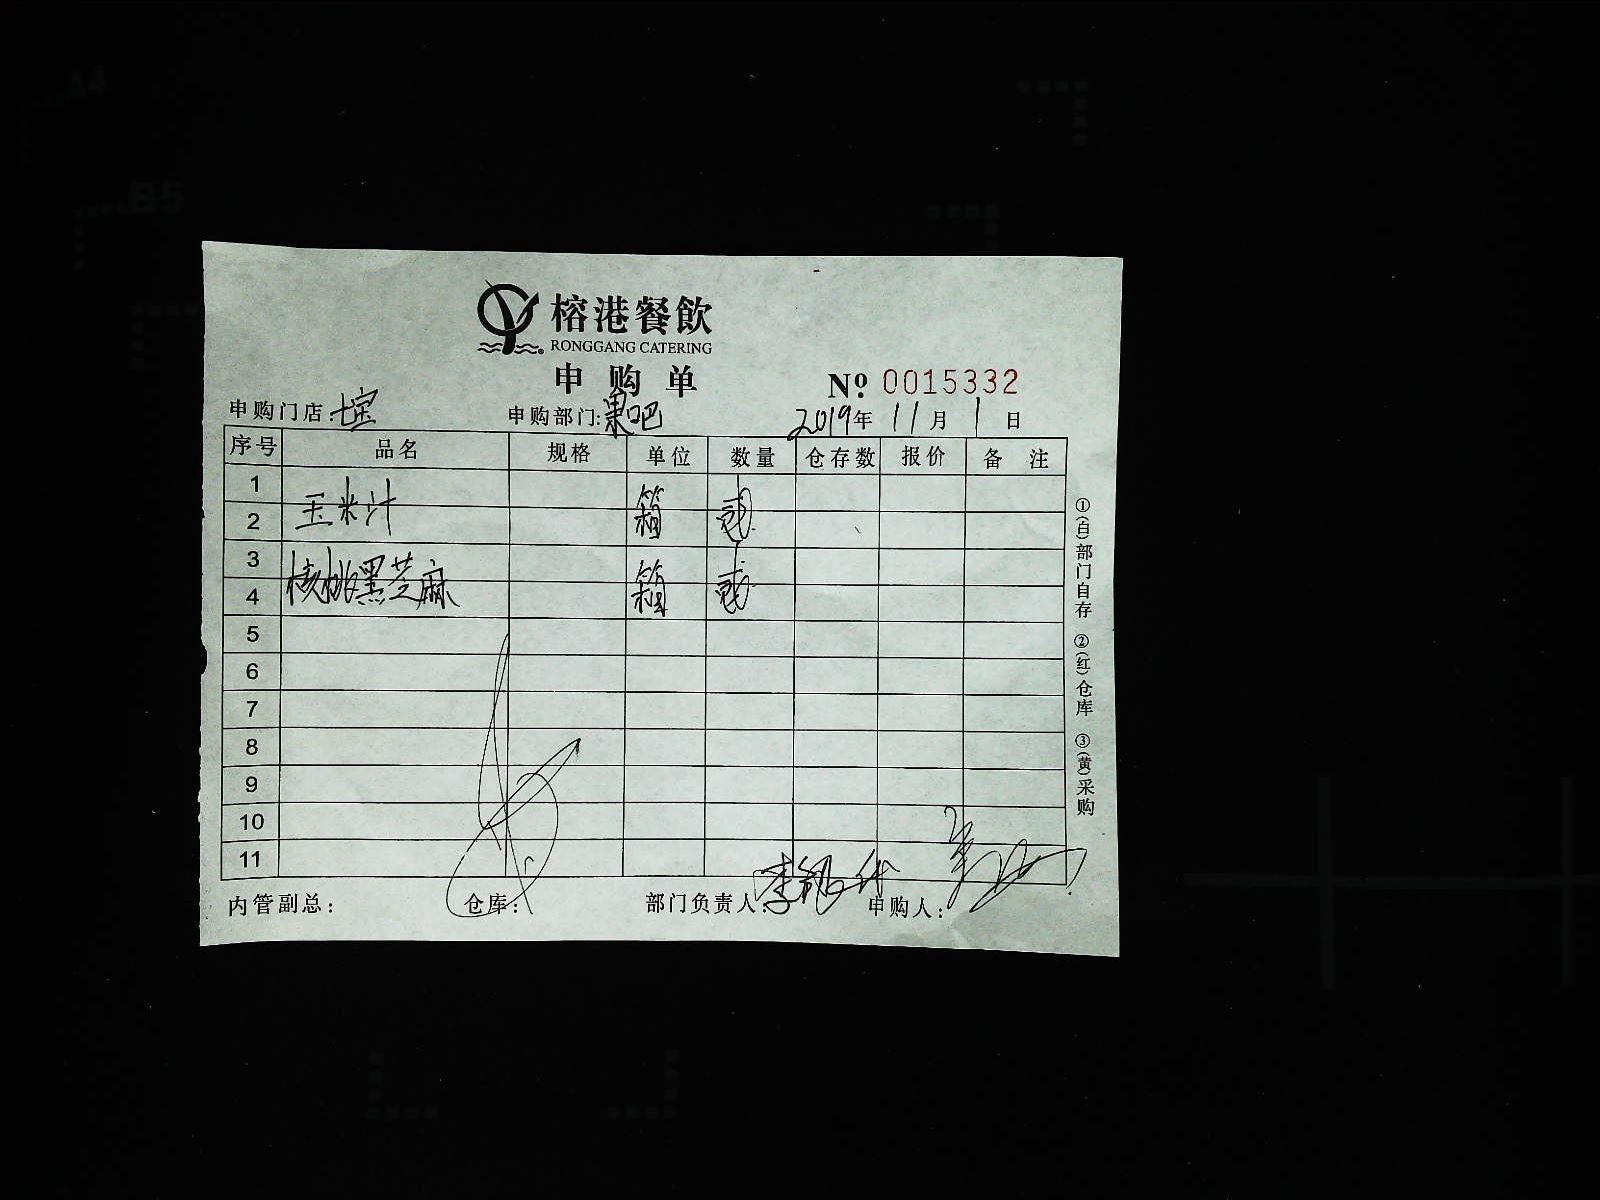 榕港餐飲
RONGGANG CATERING
申购单
№ 0015332
申购门店: 七宝 申购部门: 果吧 2019年 11月 1日
序号 品名 规格 单位 数量 仓存数 报价 备注
1
玉米汁 箱 贰
2
3
核桃黑芝麻 箱 贰
4
5
6
7
8
9
10
11
内管副总: 仓库: 部门负责人: 申购人:
①(白)部门自存 ②(红)仓库 ③(黄)采购